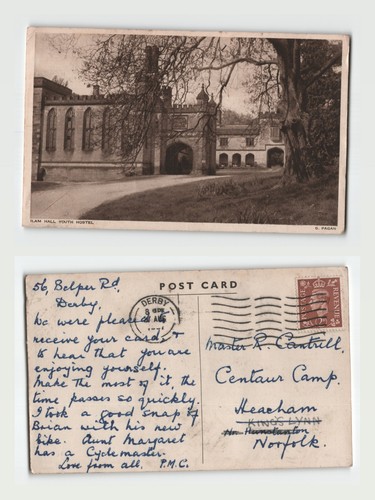 ILAM HALL YOUTH HOSTEL
G. PAGAN
POST CARD
56, Belper Rd,
Derby.
We were pleased to
receive your card &
to hear that you are
enjoying yourself.
Make the most of it, the
time passes so quickly.
I took a good snap of
Brian with his new
bike. Aunt Margaret
has a Cyclemaster.
Love from all, P.M.C.
DERBY
AUG
REVENUE
Master R. Cantrill,
Centaur Camp.
Heacham
KING'S LYNN
Nr. Hunstanton
Norfolk.